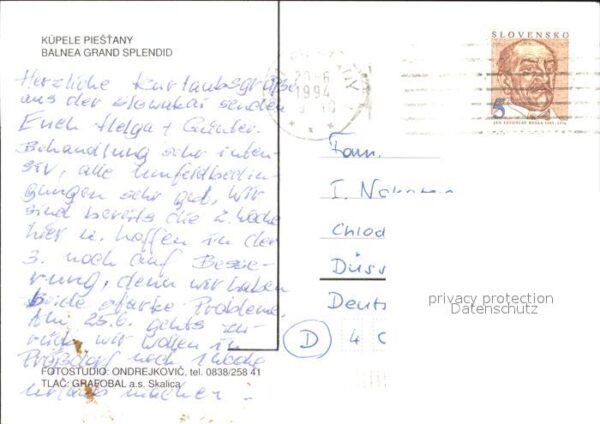 KÚPELE PIEŠŤANY
BALNEA GRAND SPLENDID
SLOVENSKO
5
20.-6
1994
Herzliche Kurlaubsgrüße
aus der Slowakai senden
Euch Helga + Günter.
Behandlung sehr inten-
siv, alle Umfeldbedin-
gungen sehr gut. Wir
sind bereits die 2. Woche
hier u. hoffen in der
3. noch auf Besse-
rung, denn wir haben
beide starke Probleme.
Am 25.6. gehts zu-
rück, wir wollen in
noch 1 Woche
Urlaub machen.
Fam.
I. 
Chlod
Düss
Deut
D
4
privacy protection
Datenschutz
FOTOSTUDIO: ONDREJKOVIČ, tel. 0838/258 41
TLAČ: GRAFOBAL a.s. Skalica